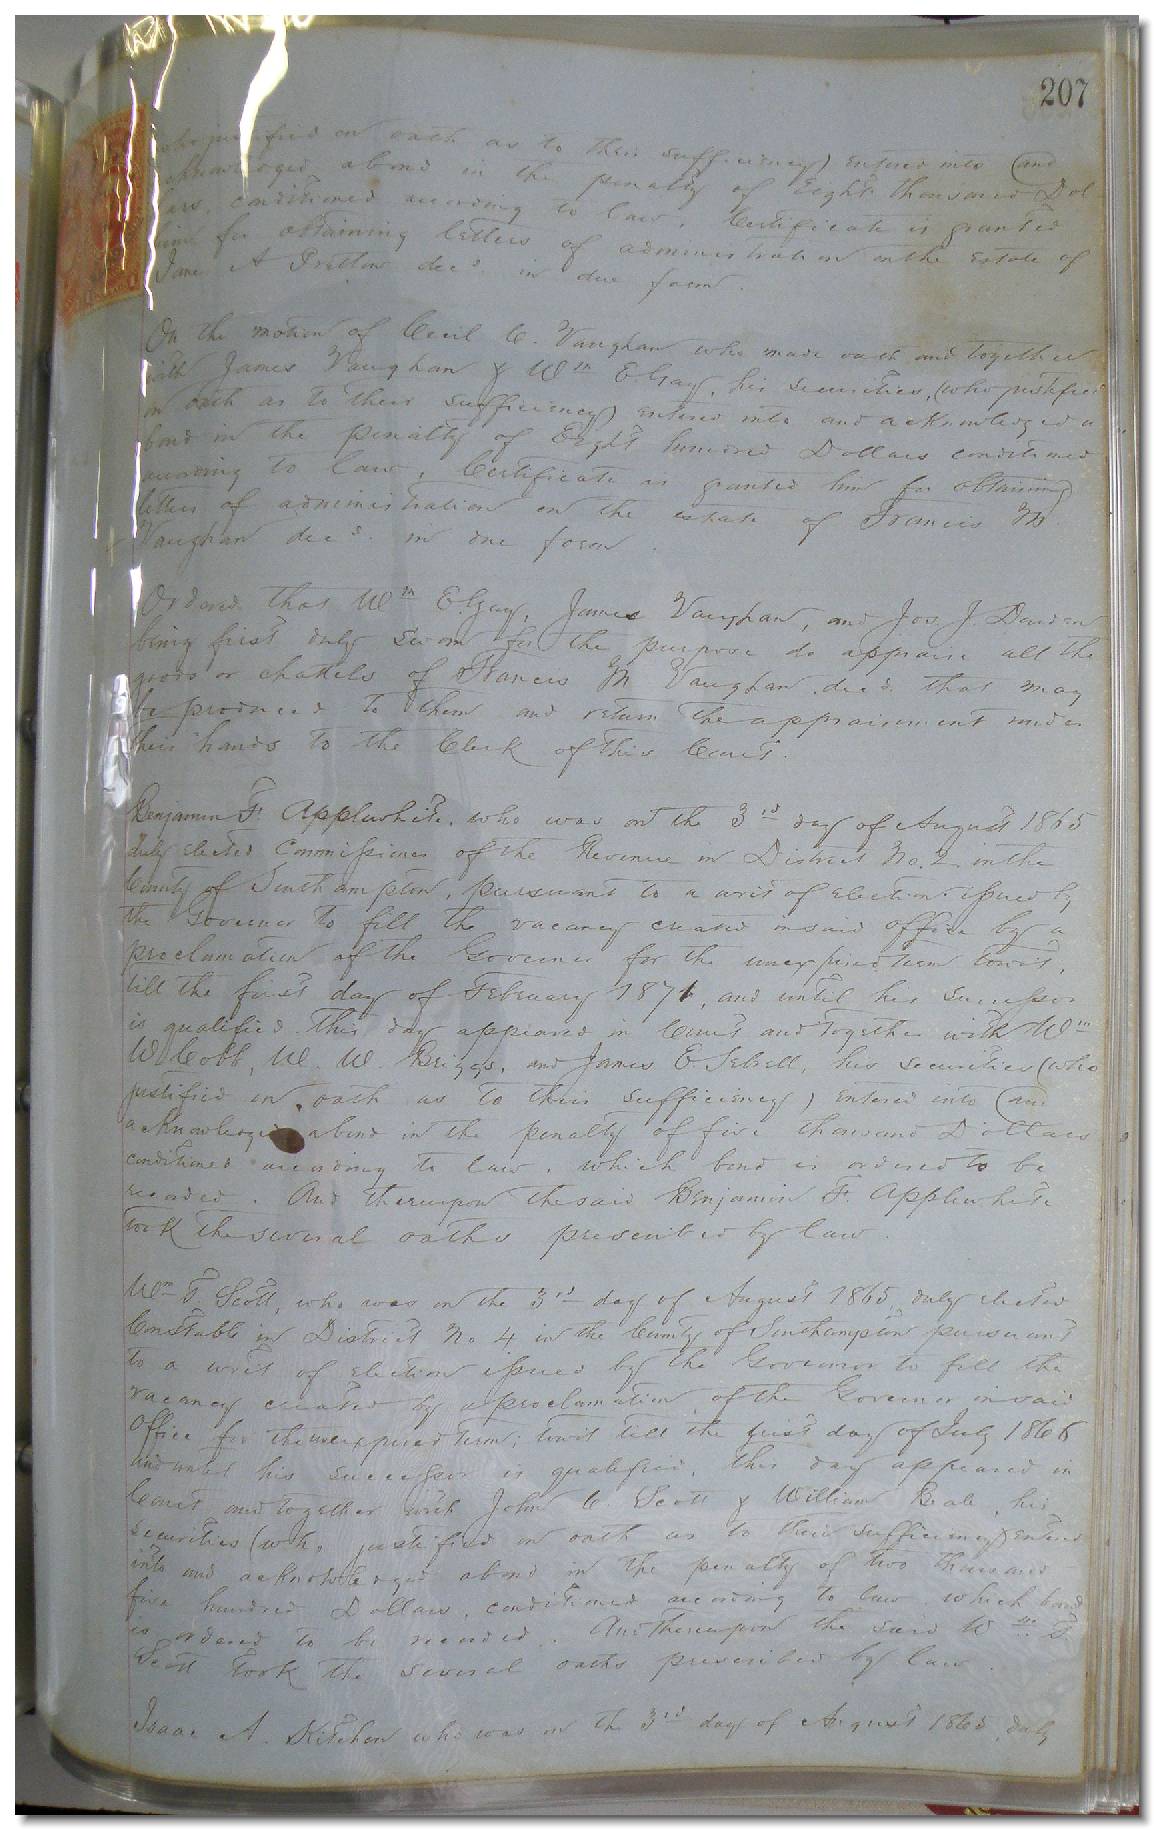 207
who justified on oath as to their sufficiency) entered into (and
acknowledged a bond in the penalty of Eight thousand Dol-
ars, conditioned according to law, Certificate is granted
him for obtaining letters of administration on the Estate of
Jane A Pretlow decd. in due form.
On the motion of Cecil C. Vaughan who made oath and together
with James Vaughan & Wm E. Gay, his securities, (who justified
on oath as to their sufficiency) entered into and acknowledged a
bond in the penalty of Eight hundred Dollars conditioned
according to law, Certificate is granted him for obtaining
letters of administration on the estate of Francis M.
Vaughan decd. in due form.
Ordered that Wm E. Gay, James Vaughan, and Jos. J. Darden
being first duly sworn for the purpose do appraise all the
goods or chattels of Francis M Vaughan decd. that may
be produced to them and return the appraisement under
their hands to the Clerk of this Court.
Benjamin F. Applewhite, who was on the 3rd day of August 1865
duly elected Commissioner of the Revenue in District No. 2 in the
County of Southampton, pursuant to a writ of election issued by
the Governor to fill the vacancy created in said office by a
proclamation of the Governor for the unexpired term towit,
till the first day of February 1871, and until his successor
is qualified this day appeared in Court and together with Wm
W. Cobb, W. W. Briggs, and James E. Sebrell, his securities (who
justified on oath as to their sufficiency) entered into (and
acknowledged a bond in the penalty of five thousand Dollars
conditioned according to law, which bond is ordered to be
recorded. And thereupon the said Benjamin F. Applewhite
took the several oaths prescribed by law.
Wm T. Scott, who was on the 3rd day of August 1865, duly elected
Constable in District No 4 in the County of Southampton pursuant
to a writ of election issued by the Governor to fill the
vacancy created by a proclamation of the Governor in said
Office for the unexpired term; towit till the first day of July 1866
and until his successor is qualified, this day appeared in
Court and together with John C. Scott & William Beale, his
securities (who justified on oath as to their sufficiency) entered
into and acknowledged a bond in the penalty of two thousand
five hundred Dollars, conditioned according to law which bond
is ordered to be recorded. And thereupon the said Wm T.
Scott took the several oaths prescribed by law.
Isaac A. Kitchen who was on the 3rd day of August 1865, duly